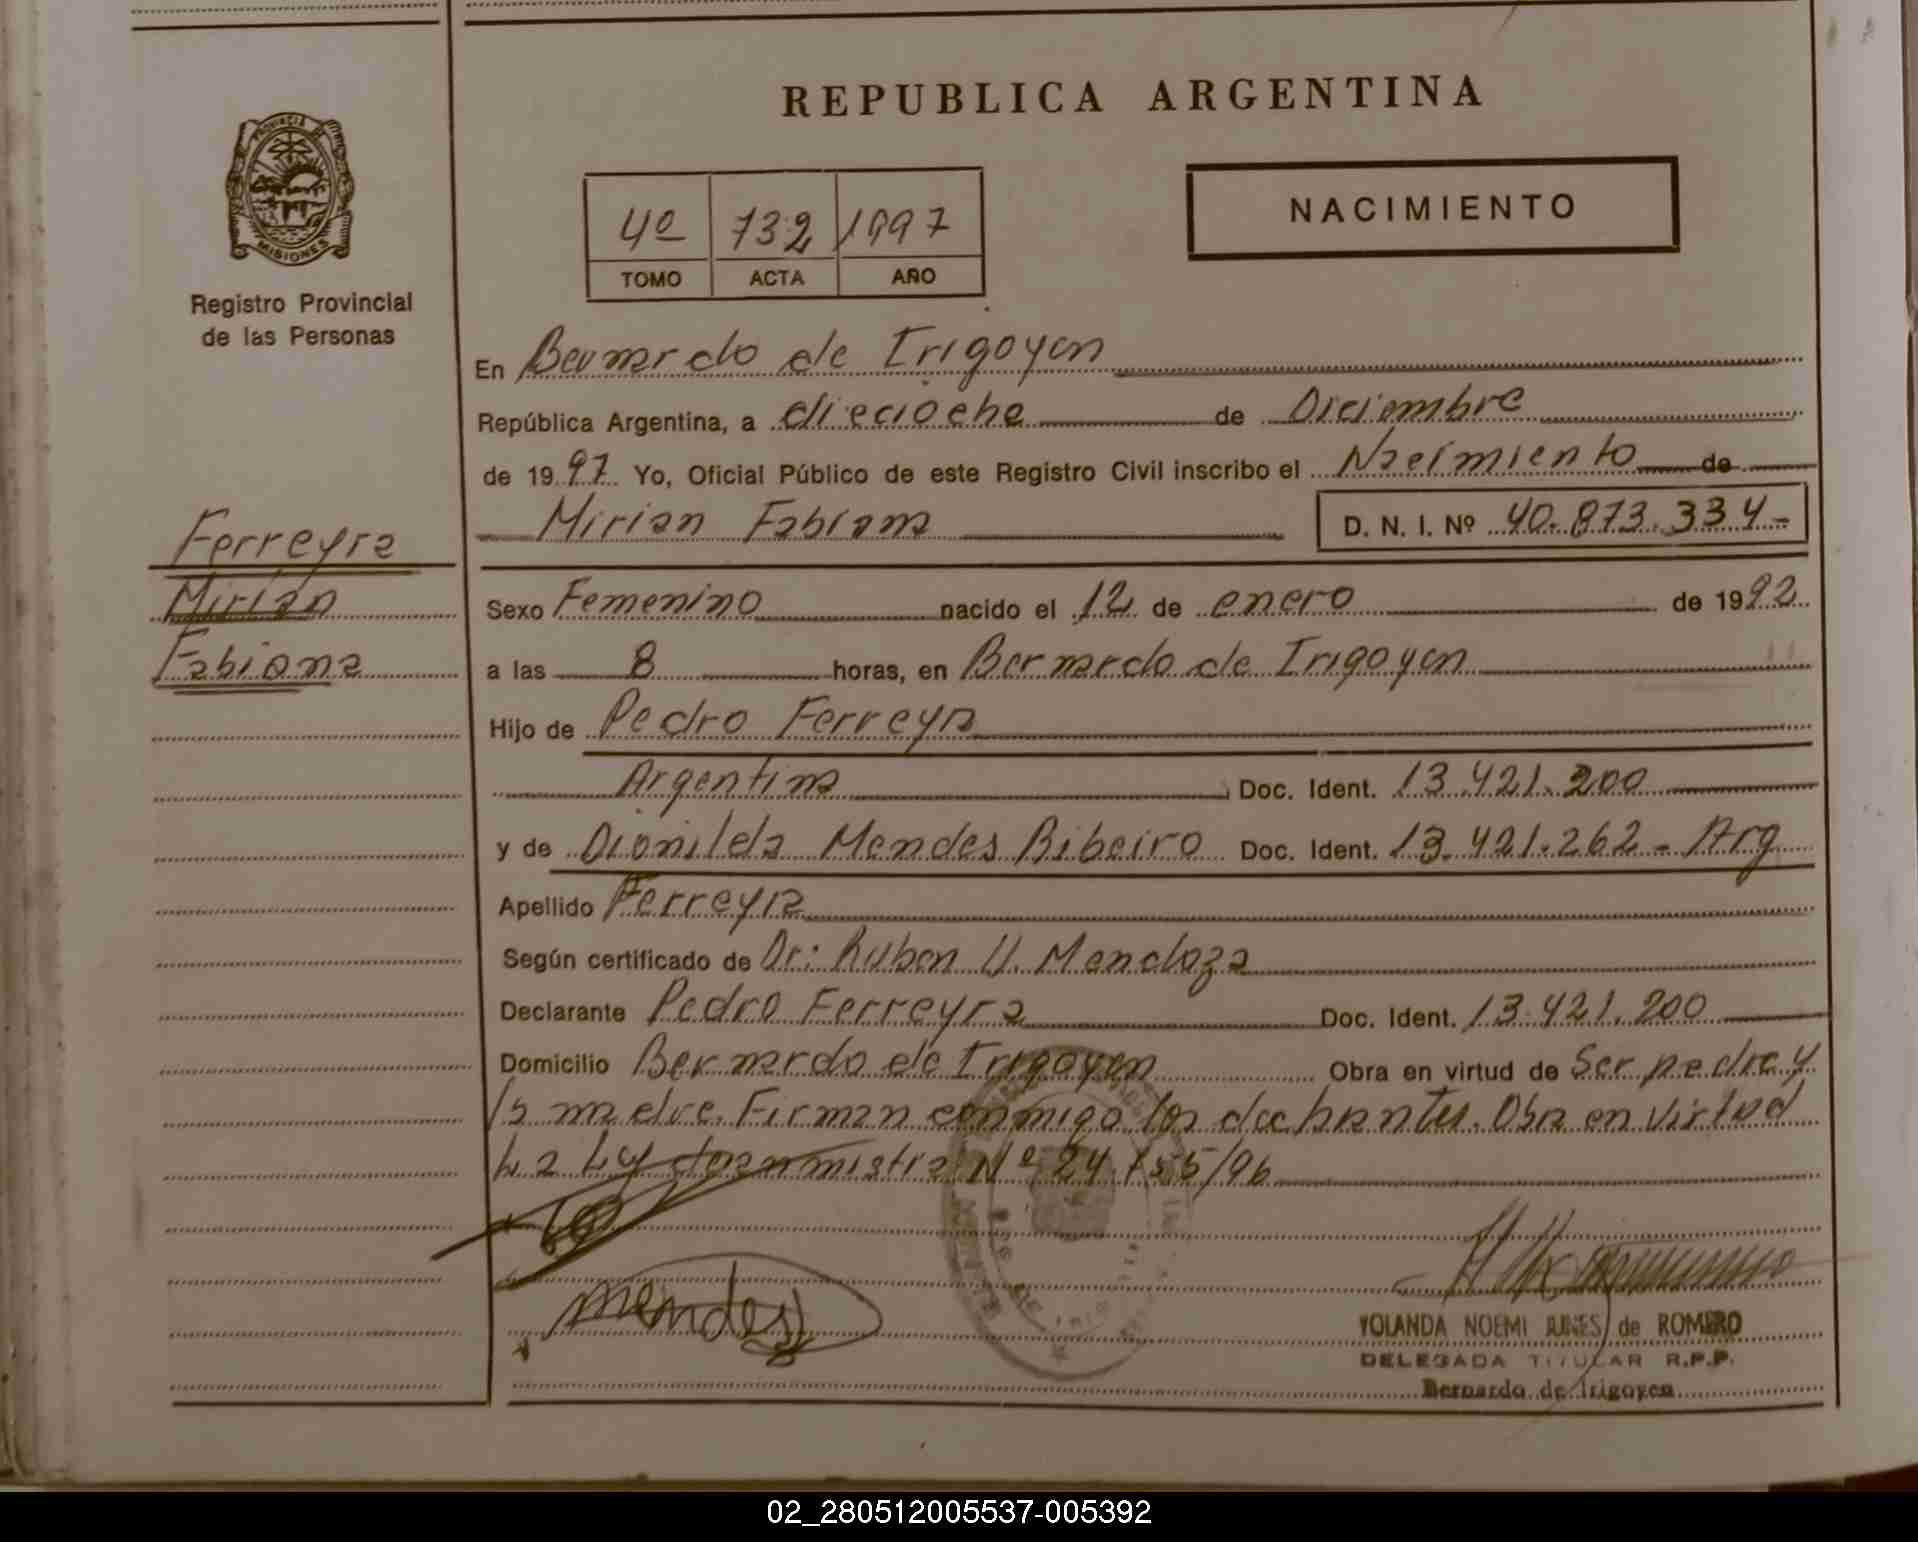 REPUBLICA ARGENTINA
PROVINCIA DE
MISIONES
Registro Provincial
de las Personas
4º 732 1997
TOMO ACTA AÑO
NACIMIENTO
En Bernardo de Irigoyen
República Argentina, a dieciocho de Diciembre
de 1997 Yo, Oficial Público de este Registro Civil inscribo el Nacimiento de
Mirian Fabiana D. N. I. Nº 40.873.334-
Ferreyra
Mirian
Fabiana
Sexo Femenino nacido el 12 de enero de 1992
a las 8 horas, en Bernardo de Irigoyen
Hijo de Pedro Ferreyra
Argentina Doc. Ident. 13.421.200
y de Dionilda Mendes Ribeiro Doc. Ident. 13.421.262 - Arg
Apellido Ferreyra
Según certificado de Dr: Ruben U. Mendoza
Declarante Pedro Ferreyra Doc. Ident. 13.421.200
Domicilio Bernardo de Irigoyen Obra en virtud de Ser padre y
la madre. Firman conmigo los declarantes. Obra en virtud
La Ley de amnistia Nº 24.755/96
mendes
YOLANDA NOEMI de ROMERO
DELEGADA TITULAR R.P.P.
Bernardo de Irigoyen
02_280512005537-005392